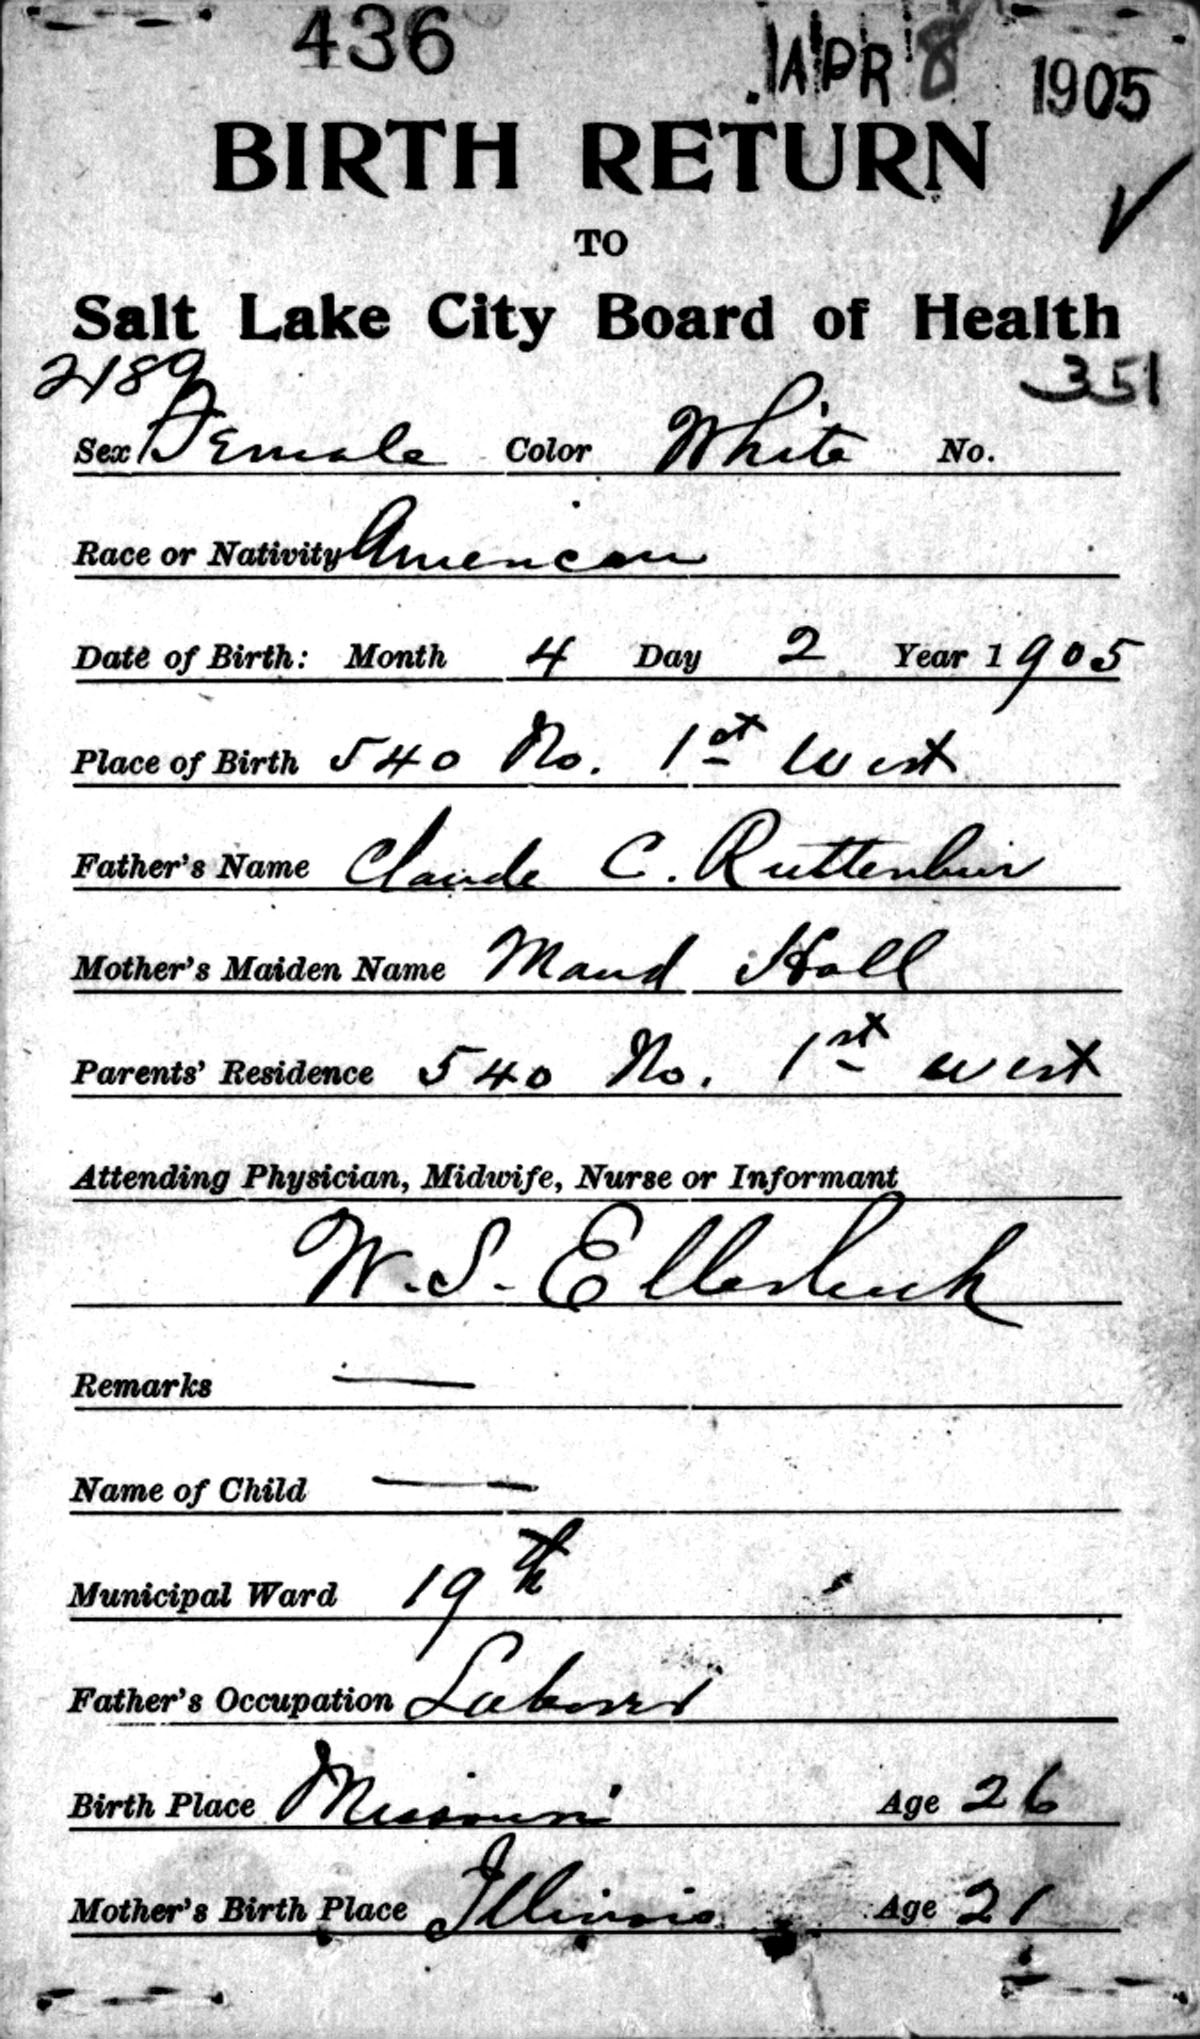 436 APR 8 1905
BIRTH RETURN
TO
Salt Lake City Board of Health
2189 351
Sex Female Color White No.
Race or Nativity American
Date of Birth: Month 4 Day 2 Year 1905
Place of Birth 540 No. 1st West
Father's Name Claude C. Ruttenbur
Mother's Maiden Name Maud Hall
Parents' Residence 540 No. 1st West
Attending Physician, Midwife, Nurse or Informant
W. S. Ellerbeck
Remarks —
Name of Child —
Municipal Ward 19th
Father's Occupation Laborer
Birth Place Missouri Age 26
Mother's Birth Place Illinois Age 21